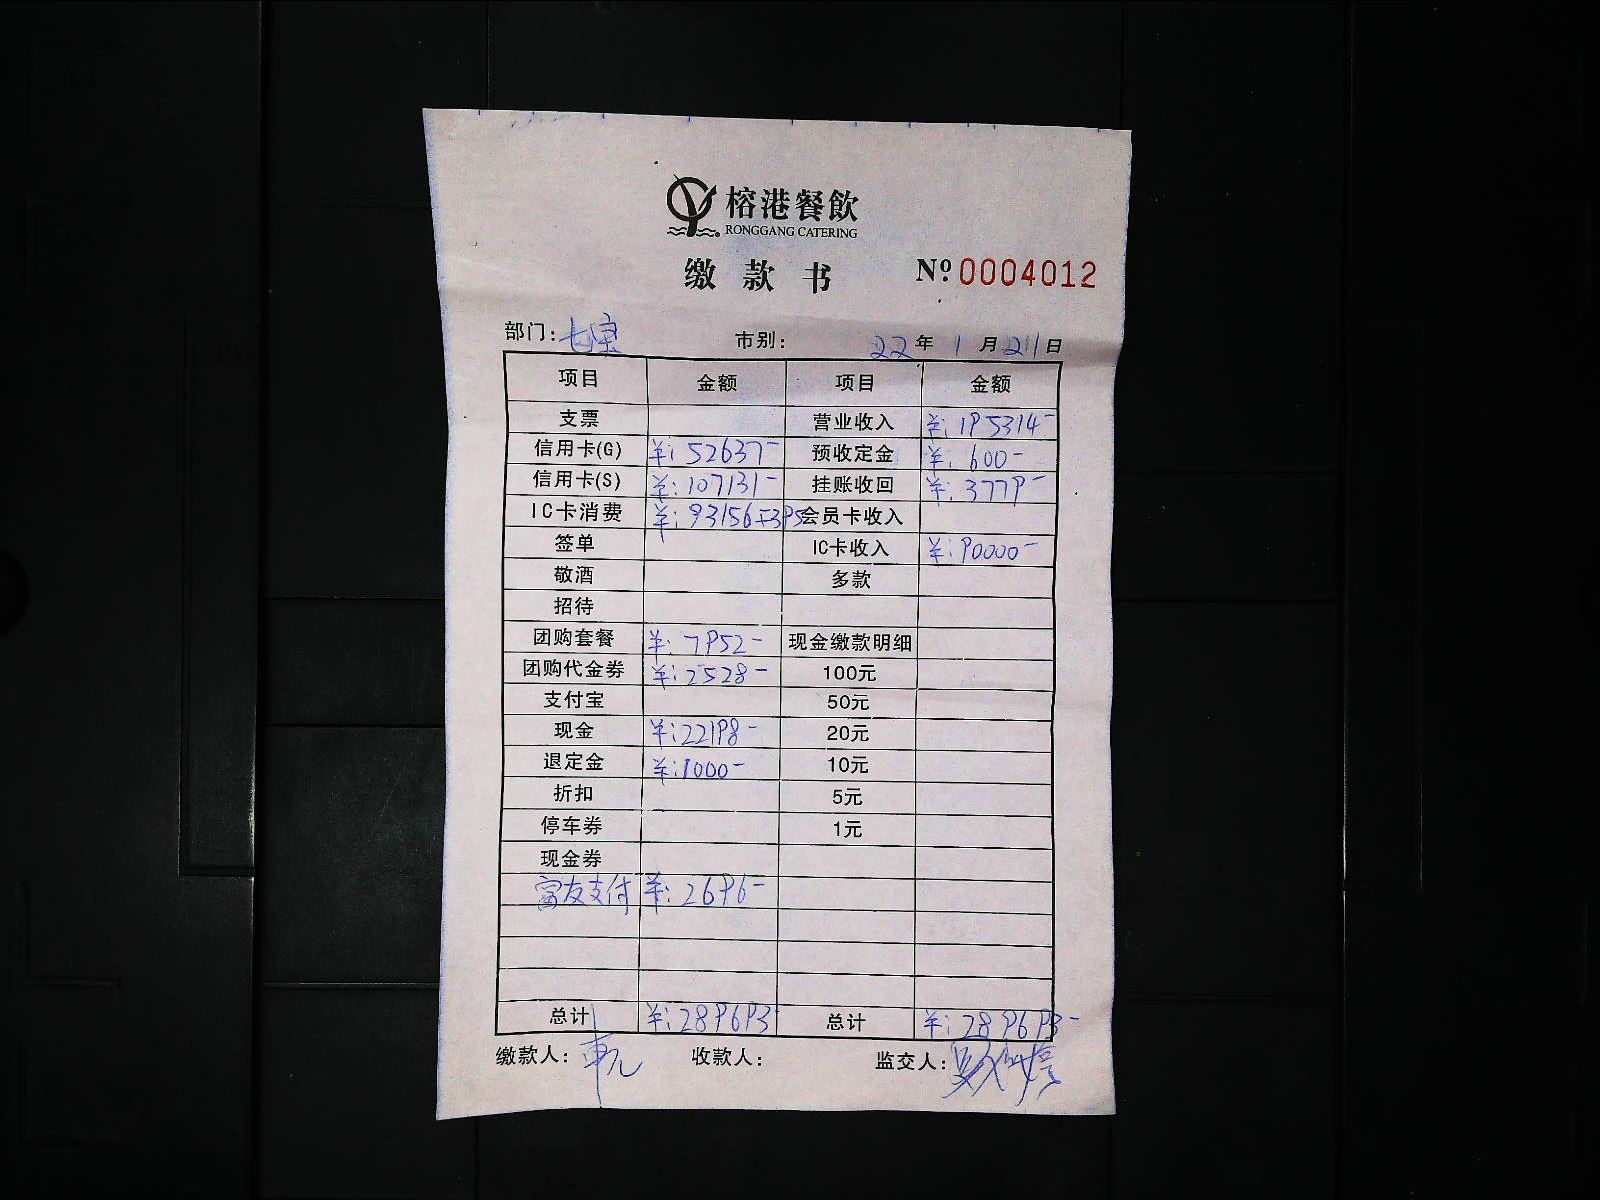 榕港餐飲
RONGGANG CATERING
缴款书 №0004012
部门：七宝 市别： 22年1月21日
项目 金额 项目 金额
支票 营业收入 ¥：195314-
信用卡(G) ¥：52637- 预收定金 ¥：600-
信用卡(S) ¥：107131- 挂账收回 ¥：3779-
IC卡消费 ¥：93156+395 会员卡收入
签单 IC卡收入 ¥：90000-
敬酒 多款
招待
团购套餐 ¥：7952- 现金缴款明细
团购代金券 ¥：2528- 100元
支付宝 50元
现金 ¥：22198- 20元
退定金 ¥：1000- 10元
折扣 5元
停车券 1元
现金券
富友支付 ¥：2696-
总计 ¥：289693 总计 ¥：289693-
缴款人： 收款人： 监交人：